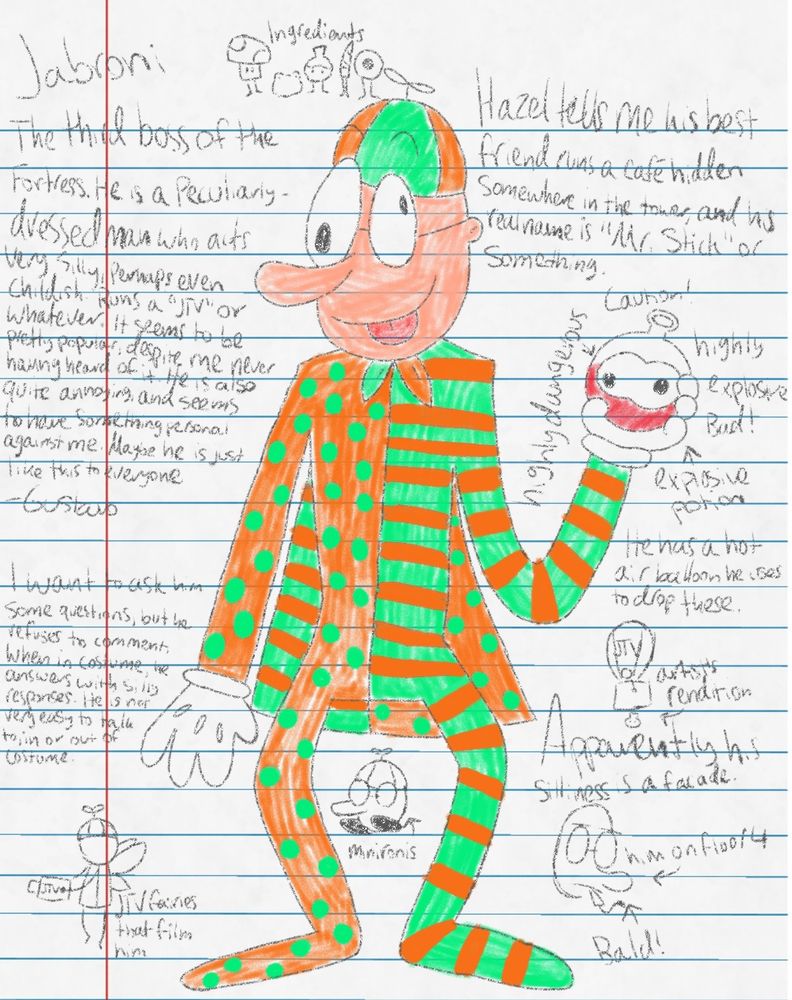 Jabroni
Ingredients
The third boss of the
Fortress. He is a Peculiarly-
dressed man who acts
very silly, Perhaps even
Childish. Runs a "JTV" or
whatever. It seems to be
pretty popular, despite me never
having heard of it. He is also
quite annoying, and seems
to have something personal
against me. Maybe he is just
like this to everyone
-Gustavo
Hazel tells me his best
friend runs a café hidden
Somewhere in the tower, and his
real name is "Mr. Stick" or
Something.
Caution!
highly dangerous
highly
explosive
Bad!
explosive
potion
He has a hot
air balloon he uses
to drop these.
JTV
artist's
rendition
I want to ask him
some questions, but he
refuses to comment.
When in costume, he
answers with silly
responses. He is not
very easy to talk
to, in or out of
costume.
Apparently his
silliness is a facade.
him on floor 4
Bald!
minironis
JTV
JTV fairies
that film
him